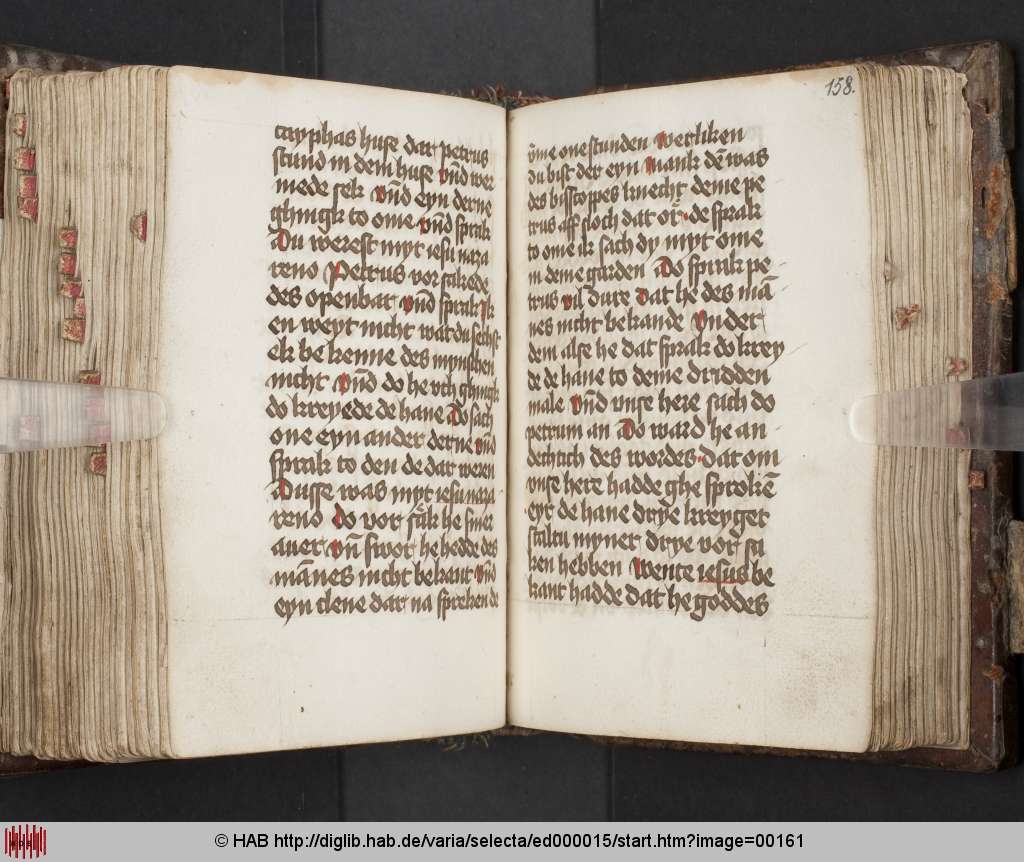 cayphas huse dar petrus
stund in dem huse vnd wer
mede sek vnd eyn derne
ghingk to ome vnd sprak
Du werest myt iesu naza
reno Petrus vor sakede
des openbar vnd sprak Ik
en weyt nicht wat du sechst
ek be kenne des mynschen
nicht vnd do he vth ghingk
do kreyede de hane Do sach
one eyn ander derne vnd
sprak to den de dar weren
Dusse was myt iesu naza
reno do vor sak he siner
auer vn̄ swor he hedde des
mānes nicht bekant vnd
eyn clene dar na spreken de
158.
v̄me one stunden werliken
du bist der eyn wank dē was
des bisscoppes knecht deme pe
trus aff sloch dat or̄ de sprak
to ome ik sach dy myt ome
in deme garden Do sprak pe
trus vil dure dat he des mā
nes nicht bekande Vn der
dem alse he dat sprak do krey
de de hane to deme dridden
male vnd vnse here sach do
petrum an Do ward he an
dechtich des wordes dat om
vnse here hadde ghe sprokē
eyr de hane drye kreyget
staltu myner drye vor sa
ken hebben wente iesus be
kant hadde dat he goddes
© HAB http://diglib.hab.de/varia/selecta/ed000015/start.htm?image=00161